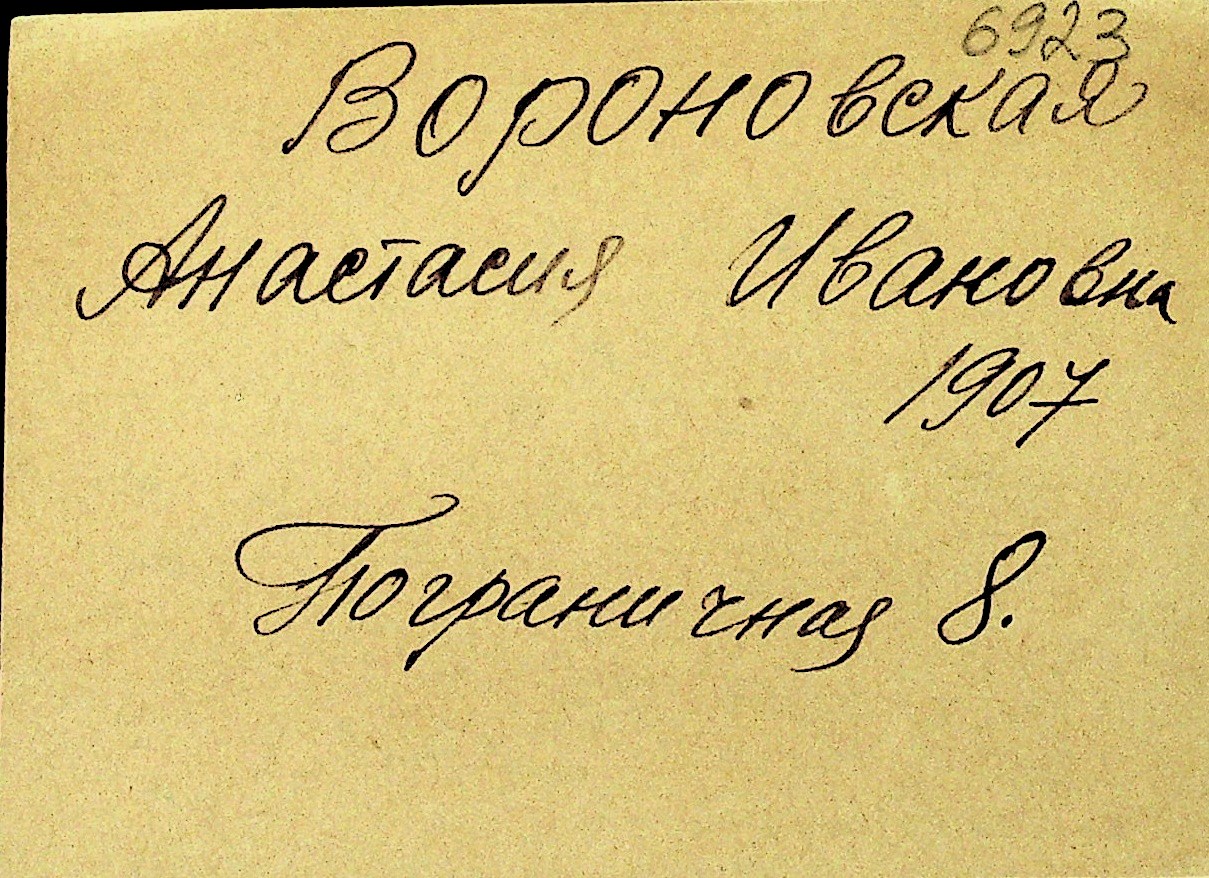 6923
Вороновская
Анастасия Ивановна
1907
Пограничная 8.